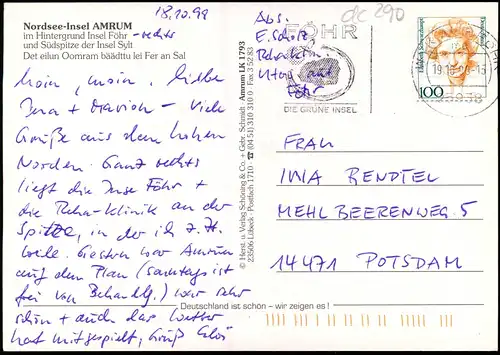 18.10.98
Nordsee-Insel AMRUM
im Hintergrund Insel Föhr - rechts
und Südspitze der Insel Sylt
Det eilun Oomram bääдttu lei Fer an Sal
Moin, moin, liebe
Ina + Marion - Viele
Grüße aus dem hohen
Norden. Ganz rechts
liegt die Insel Föhr +
die Reha-Klinik an der
Spitze, in der ich z. Zt.
weile. Gestern war Amrum
auf dem Plan (samstags ist
frei von Behandlg.) war sehr
schön + auch das Wetter
hat mitgespielt, Gruß
Deutschland ist schön – wir zeigen es!
© Herst. u. Verlag Schöning & Co. + Gebr. Schmidt Amrum LK 1793
23506 Lübeck · Postfach 1710 · ☎ (04 51) 310 310 0 · Fax 3 52 83
dc 290
Abs.
E. Scholz
Rehaklin.
Utersum auf
Föhr
FÖHR
DIE GRÜNE INSEL
100
FRAU
INA RENDTEL
MEHLBEERENWEG 5
14471 POTSDAM